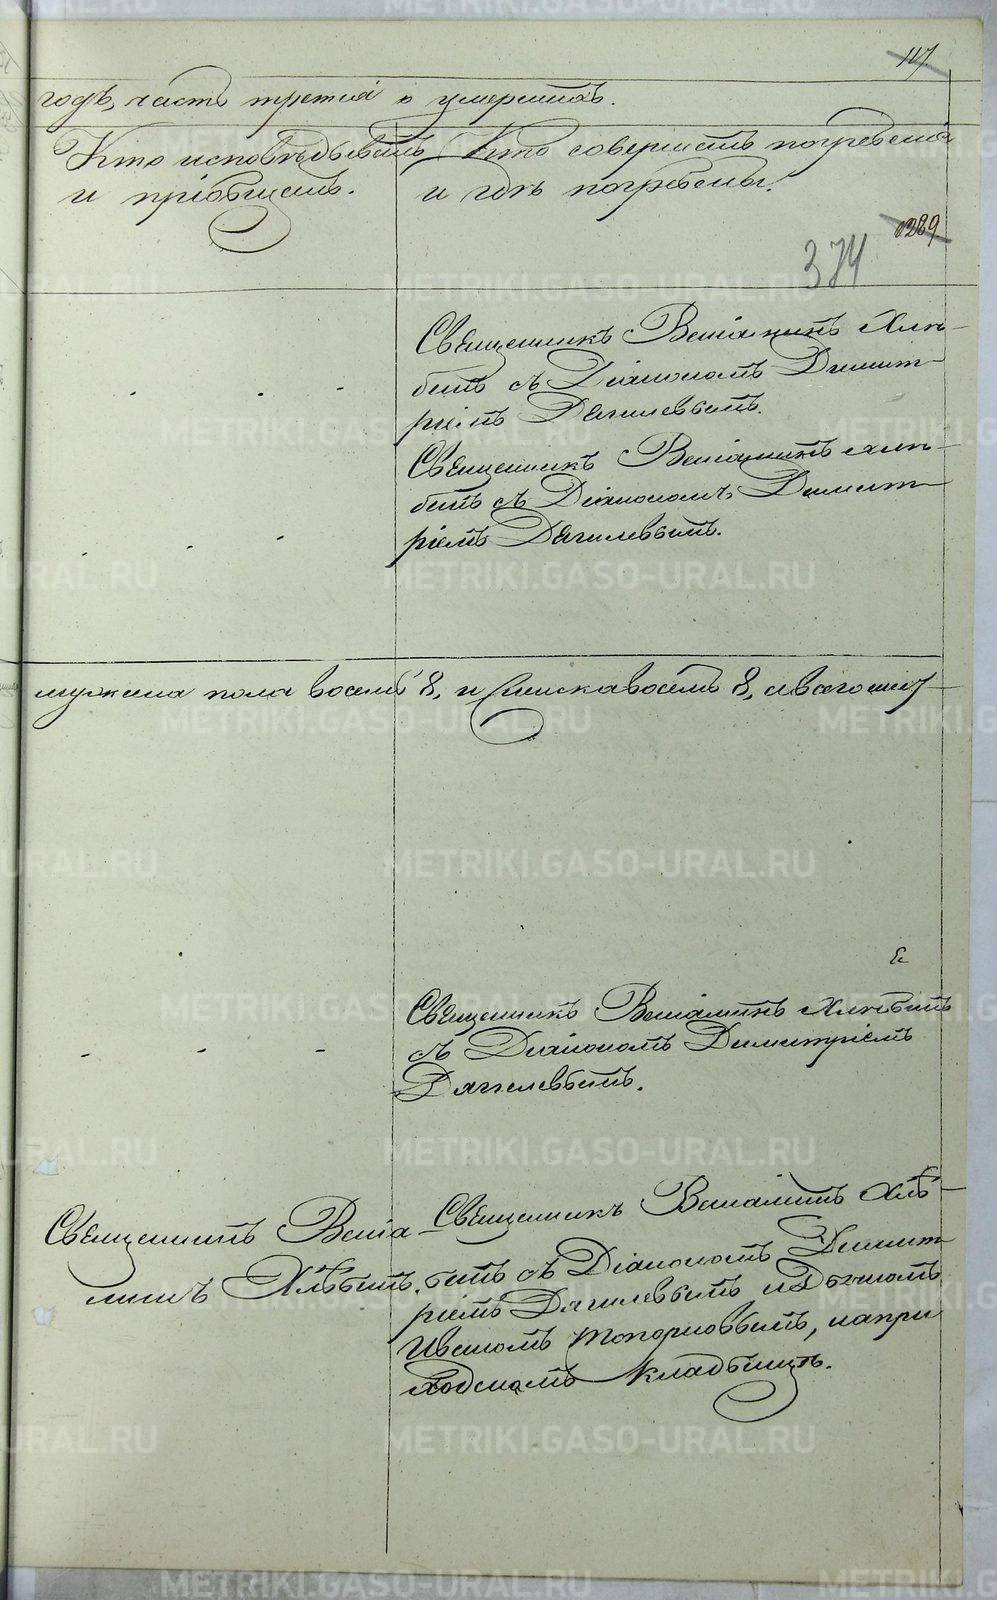 117.
годъ, часть третiя о умершихъ.
Кто исповѣдывалъ
и прiобщалъ.
Кто совершалъ погребенiе
и гдѣ погребены.
1289
374
Священникъ Венiаминъ Хлѣ-
бинъ съ Дiакономъ Димит-
рiемъ Дягилевымъ.
Священникъ Венiаминъ Хлѣ-
бинъ съ Дiакономъ Димит-
рiемъ Дягилевымъ.
мужеска пола восемь 8, и женска восемь 8, а всего шест-
Священникъ Венiаминъ Хлѣбинъ
съ Дiакономъ Димитрiемъ
Дягилевымъ.
Священникъ Венiа-
минъ Хлѣбинъ.
Священникъ Венiаминъ Хлѣ-
бинъ съ Дiакономъ Димит-
рiемъ Дягилевымъ и Дьячкомъ
Иваномъ Топорковымъ, на при
ходскомъ кладбищѣ.
METRIKI.GASO-URAL.RU